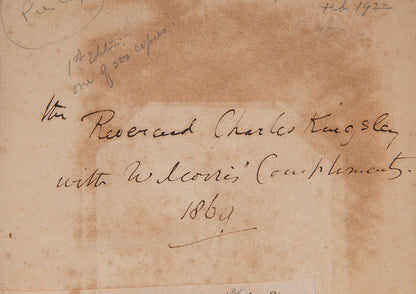 Pres
Feb 1922
1st Editn:
one of 500 copies.
the Reverend Charles Kingsley
with W. Morris' Compliments.
1869